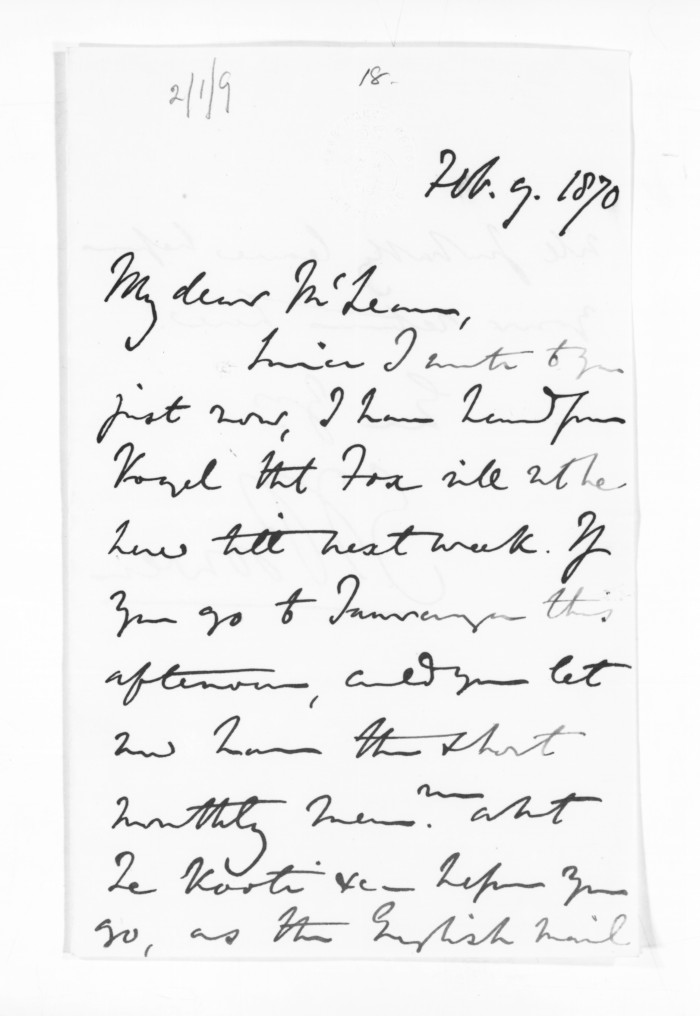 2/1/9
18.
Feb. 9. 1870
My dear McLean,
Since I wrote to you
just now, I have heard from
Vogel tht Fox will not be
here till next week. If
you go to Tauranga this
afternoon, could you let
me have the short
monthly mem.m abt
Te Kooti &c before you
go, as the English mail